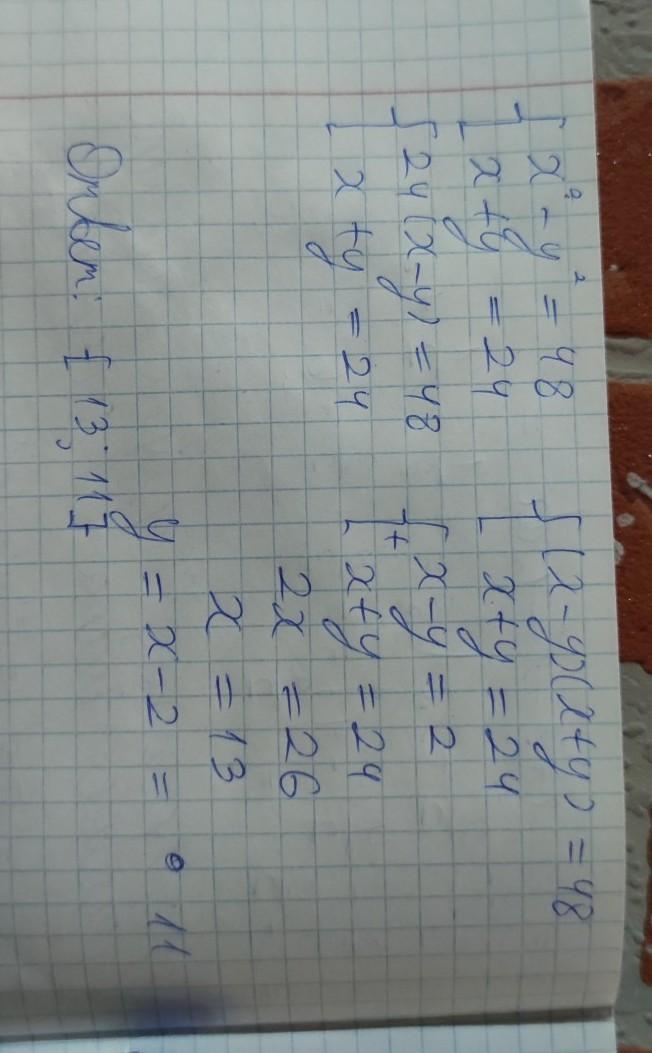 { x² - y² = 48
{ x + y = 24
{ (x-y)(x+y) = 48
{ x+y = 24
{ 24(x-y) = 48
{ x + y = 24
+ { x-y = 2
{ x+y = 24
2x = 26
x = 13
y = x-2 = 11
Ответ: {13; 11}